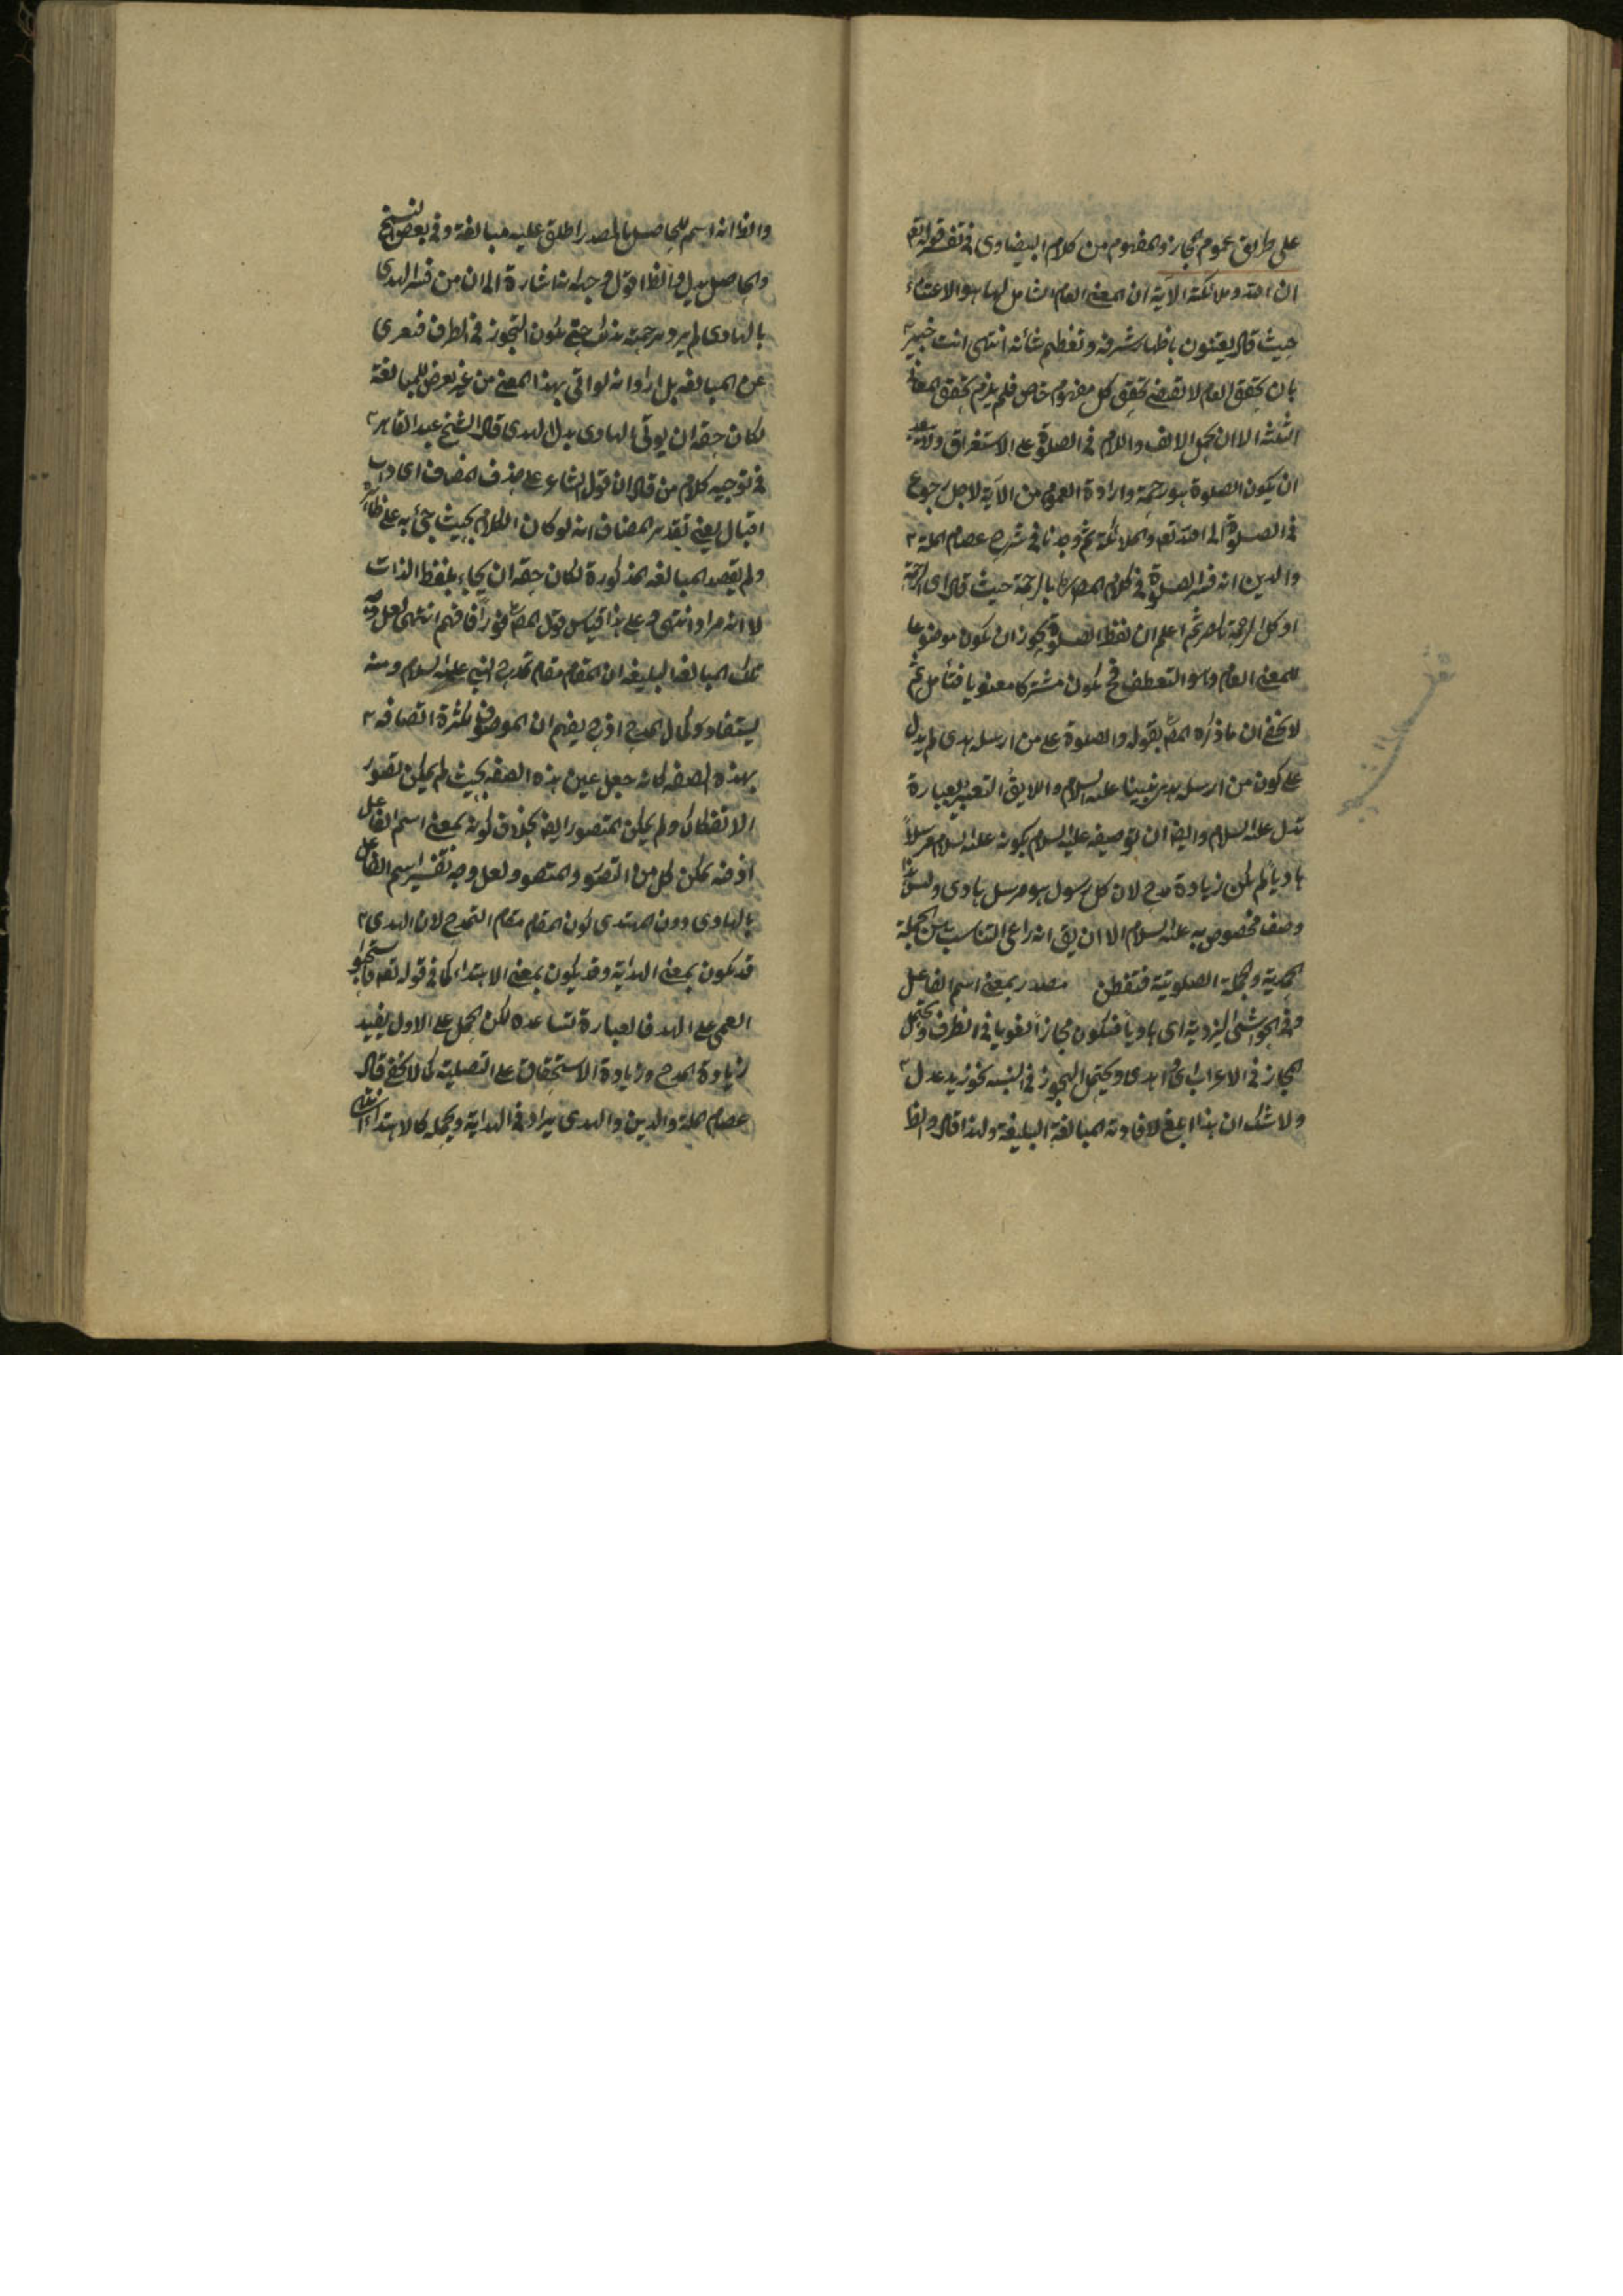 على طريق عموم المجاز والمفهوم من كلام البيضاوى فى تفسير قوله تع
ان الله وملائكته الآية ان المعنى العام الشامل لهما هو الاعتناء
حيث قال يعتنون باظهار شرفه وتعظيم شأنه انتهى انت خبير
بان تحقق العام لا يقتضى تحقق كل مفهوم خاص فلم يلزم تحقق المعانى
الثلثة الا ان يحمل الالف واللام فى الصلوة على الاستغراق
ان يكون الصلوة هو رحمة وارادة العموم من الآية لاجل رجوع
فى الصلوة الى الله تع والملائكة ثم وجدنا فى شرح عصام الملة
والدين انه فسر الصلوة فى كلام المص بالرحمة حيث قال اى الرحمة
او كل الرحمة ثم اعلم ان لفظ الصلوة يجوز ان يكون موضوعا
للمعنى العام وهو التعطف فح يكون مشتركا معنويا فتأمل ثم
لا يخفى ان ما ذكره المص بقوله والصلوة على من ارسله هدى لم يدل
على كون من ارسله هدى نبينا عليه السلام واللايق التعبير بعبارة
تدل عليه السلام وايضا ان توصيفه عليه السلام بكونه عليه السلام مرسلاً
هادياً لم يكن زيادة مدح لان كل رسول هو مرسل هادى وليس هذا
وصف مخصوص به عليه السلام الا ان يق انه راعى التناسب بين الجملة
الحمدية والجملة الصلوتية فتفطن مصدر بمعنى اسم الفاعل
وفى الحواشى اليزدية اى هادياً فيكون مجازاً لغويا فى الطرف ويحتمل
المجاز فى الاعراب اى هدى ويحتمل التجوز فى النسبة نحو زيد عدل
ولا شك ان هذا ابلغ لافادته المبالغة البليغة ولهذا قال والظا
والظا انه اسم للحاصل بالمصدر اطلق عليه مبالغة وفى بعض النسخ
والحاصل بدل والظا اقول وجدانه اشارة الى ان من فسر الهدى
بالهادى لم يرد ترجمته بذلك حتى يكون التجوز فى الطرف فيعرى
عن المبالغة بل اراد انه لو اتى بهذا المعنى من غير تعرض للمبالغة
لكان حقه ان يوتى الهادى بدل الهدى قال الشيخ عبد القاهر
فى توجيه كلام من قال ان قول الشاعر على حذف المضاف اى ذات
اقبال يعنى تقدير المضاف انه لو كان الكلام بحيث جئ به على ظاهره
ولم يقصد المبالغة المذكورة لكان حقه ان يجاء بلفظ الذات
لا انه مراد انتهى وعلى هذا قياس قول المص فافهم انتهى لعل وجه
تلك المبالغة البليغة ان المقام مقام تمدح النبى عليه السلام ومنه
يستفاد كمال المدح اذ ح يفهم ان الموصوف لكثرة اتصافه
بهذه الصفة كانه جعل عين هذه الصفة بحيث لم يمكن تصور
الانفكاك ولم يمكن المتصور ايضا بخلاف كونه بمعنى اسم الفاعل
اذ فيه يمكن كل من التصور والمتصور ولعل وجه تفسير اسم الفاعل
بالهادى دون المهتدى كون المقام مقام التمدح لان الهدى
قد يكون بمعنى الهداية وقد يكون بمعنى الاهتداء كما فى قوله تع فاستحبوا
العمى على الهدى فالعبارة تساعده لكن الحمل على الاول يفيد
زيادة المدح وزيادة الاستحقاق على التصلية كما لا يخفى قال
عصام الملة والدين والهدى يراد فى الهداية ويجىء كالاهتداء انتهى